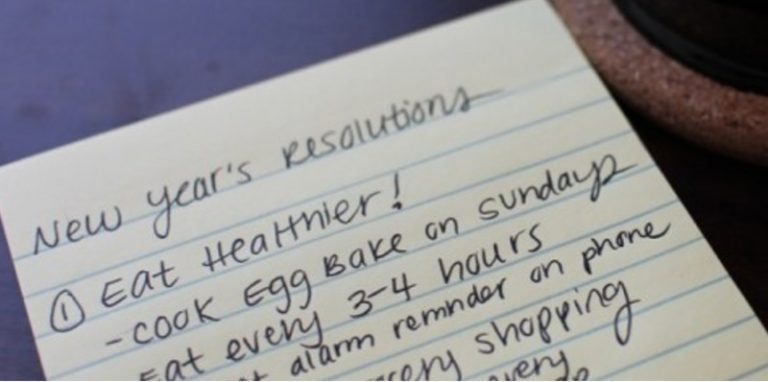 New Year's Resolutions
① Eat Healthier!
- Cook Egg Bake on Sundays
Eat every 3-4 hours
alarm remnder on phone
shopping